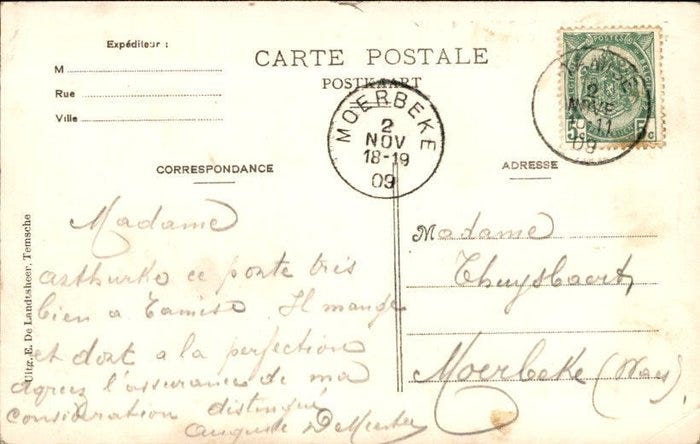 Expéditeur :
M
Rue
Ville
CARTE POSTALE
POSTKAART
MOERBEKE
2
NOV
18-19
09
POSTES
5 c
2
NOVE
10-11
09
CORRESPONDANCE
ADRESSE
Madame
arthurke ce porte très
bien a Tamise. Il mange
et dort a la perfection
Agreez l'assurance de ma
consideration distingué
Auguste DeMeester
Madame
Thuysbaert,
Moerbeke (Waes)
Uitg. E. De Landtsheer, Temsche